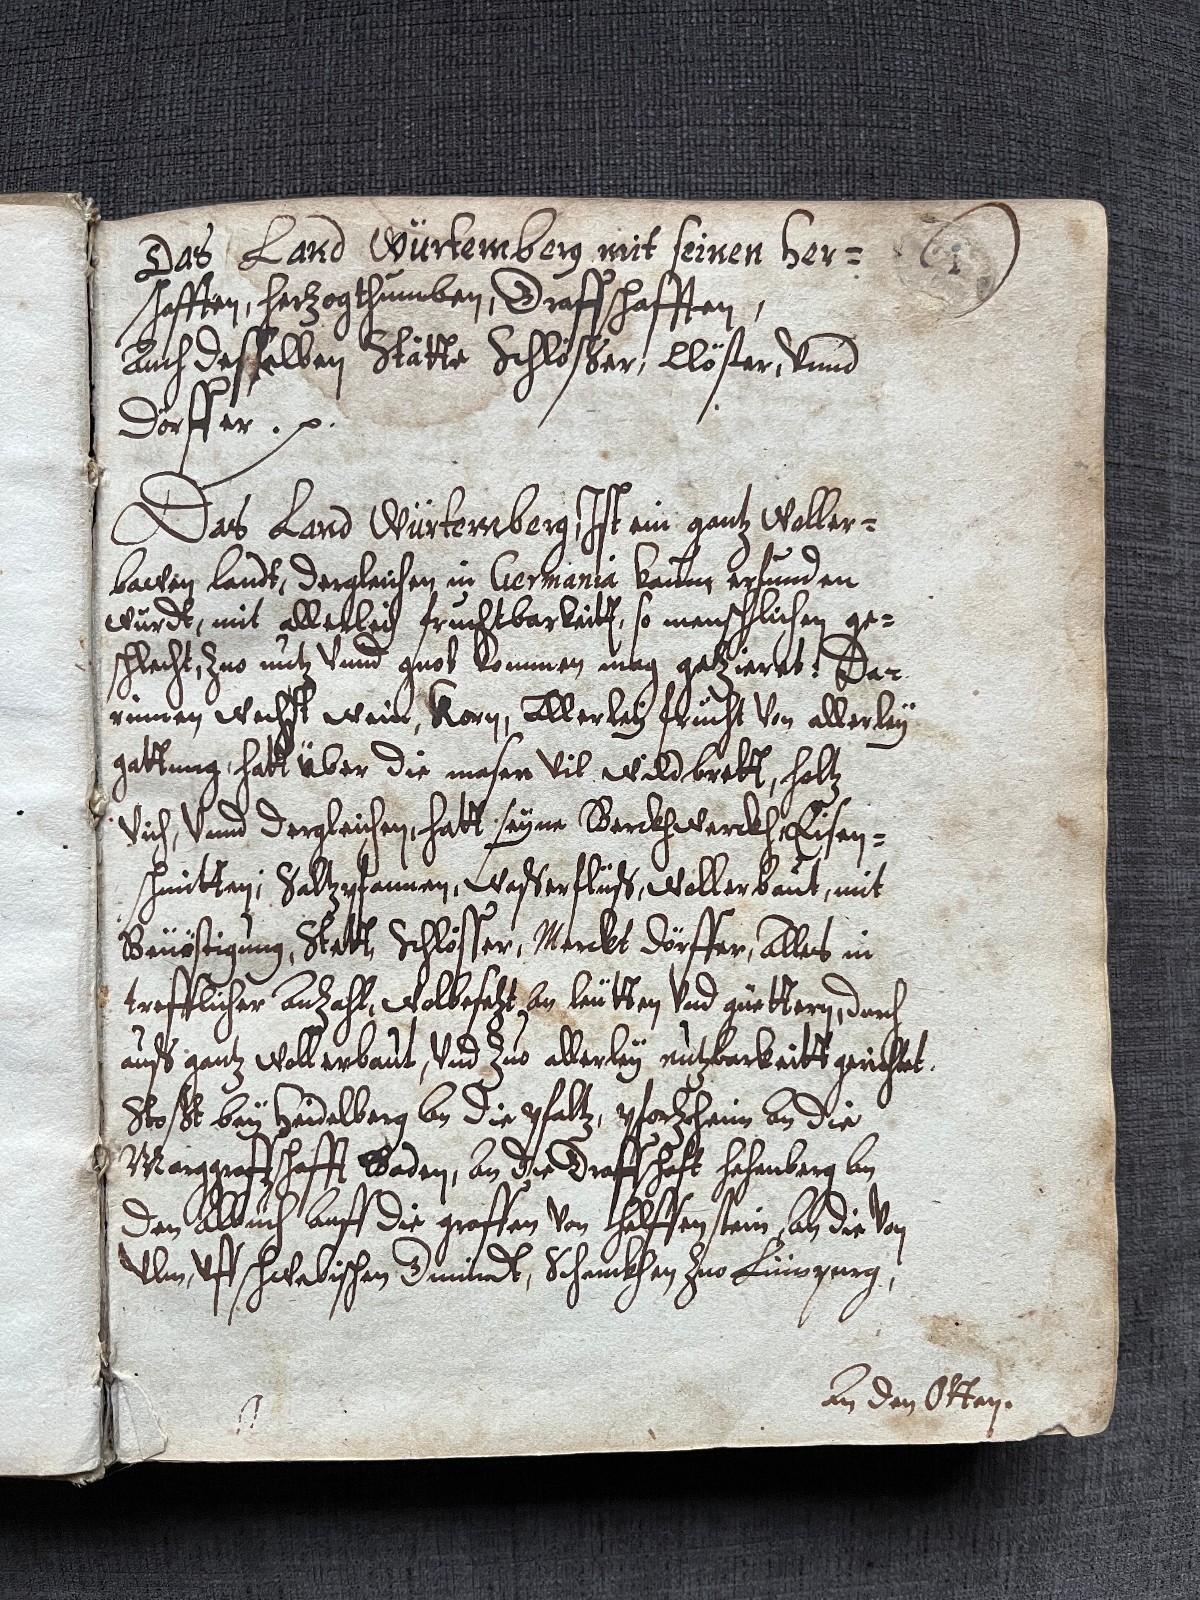 1
Das Land Würtemberg mit seinen Her=
schafften, hertzogthumben, Graffschafften,
Auch desselben Stätte Schlösser, Clöster, Vnnd
Dörffer.
Das Land Würtemberg, Ist ein gantz Woller=
bawen landt, dergleichen in Germania kaum erfunden
würdt, mit allerleÿ fruchtbarkeitt, so menschlichen ge=
schlecht, zuo nutz Vnnd guot kommen mag getzieret: Da=
rinnen wechst wein, Korn, Allerleÿ frücht Von allerleÿ
gattung, hatt über die masen Vil wildbrett, holtz
Vich, Vnnd dergleichen, hatt seÿne Berckhwerckh, Eisen=
schmitten, Saltzpfannen, Wasserflüss, Wollerbaut, mit
Stett, Schlösser, Merckt Dörffer, Alles in
trefflicher Anzahl, Wolbesetzt an leütten Vnd güettern, durch
auss gantz Wollerbaut, Vnd zuo allerleÿ nutzbarkeitt gerichtet.
Stost beÿ Heidelberg an die Pfaltz, Pfortzheim an die
Marggraffschafft Baden, an die Graffschaft Hohenberg an
den Albuch auff die graffen Von Helffenstein, an die Von
Vlm, Vff schwebischen Gmündt, Schenckhen zuo Limpurg,
an den Otten.